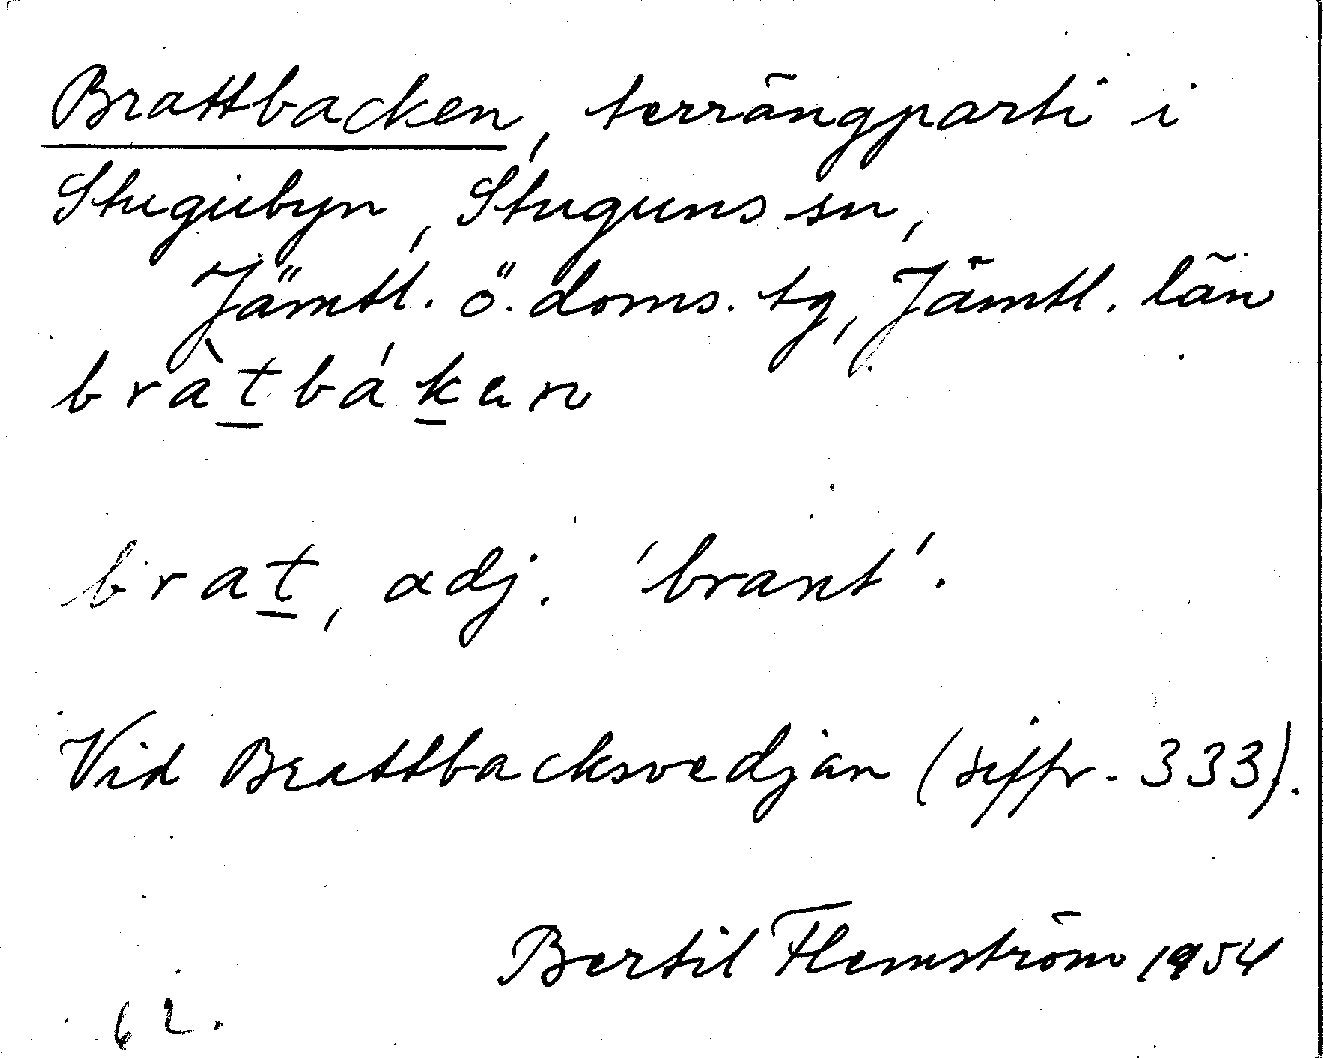 Brattbacken, terrängparti i
Stugubyn, Stuguns sn,
Jämtl. ö. doms. tg, Jämtl. län
bràt̲bák̲en
brat̲, adj. 'brant'.
Vid Brattbacksvedjan (siffr. 333).
Bertil Flemström 1954
62.